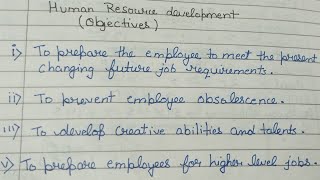 Human Resource development
(Objectives)
i) To prepare the employee to meet the present
changing future job requirements.
ii) To prevent employee obsolescence.
iii) To develop creative abilities and talents.
v) To prepare employees for higher level jobs.